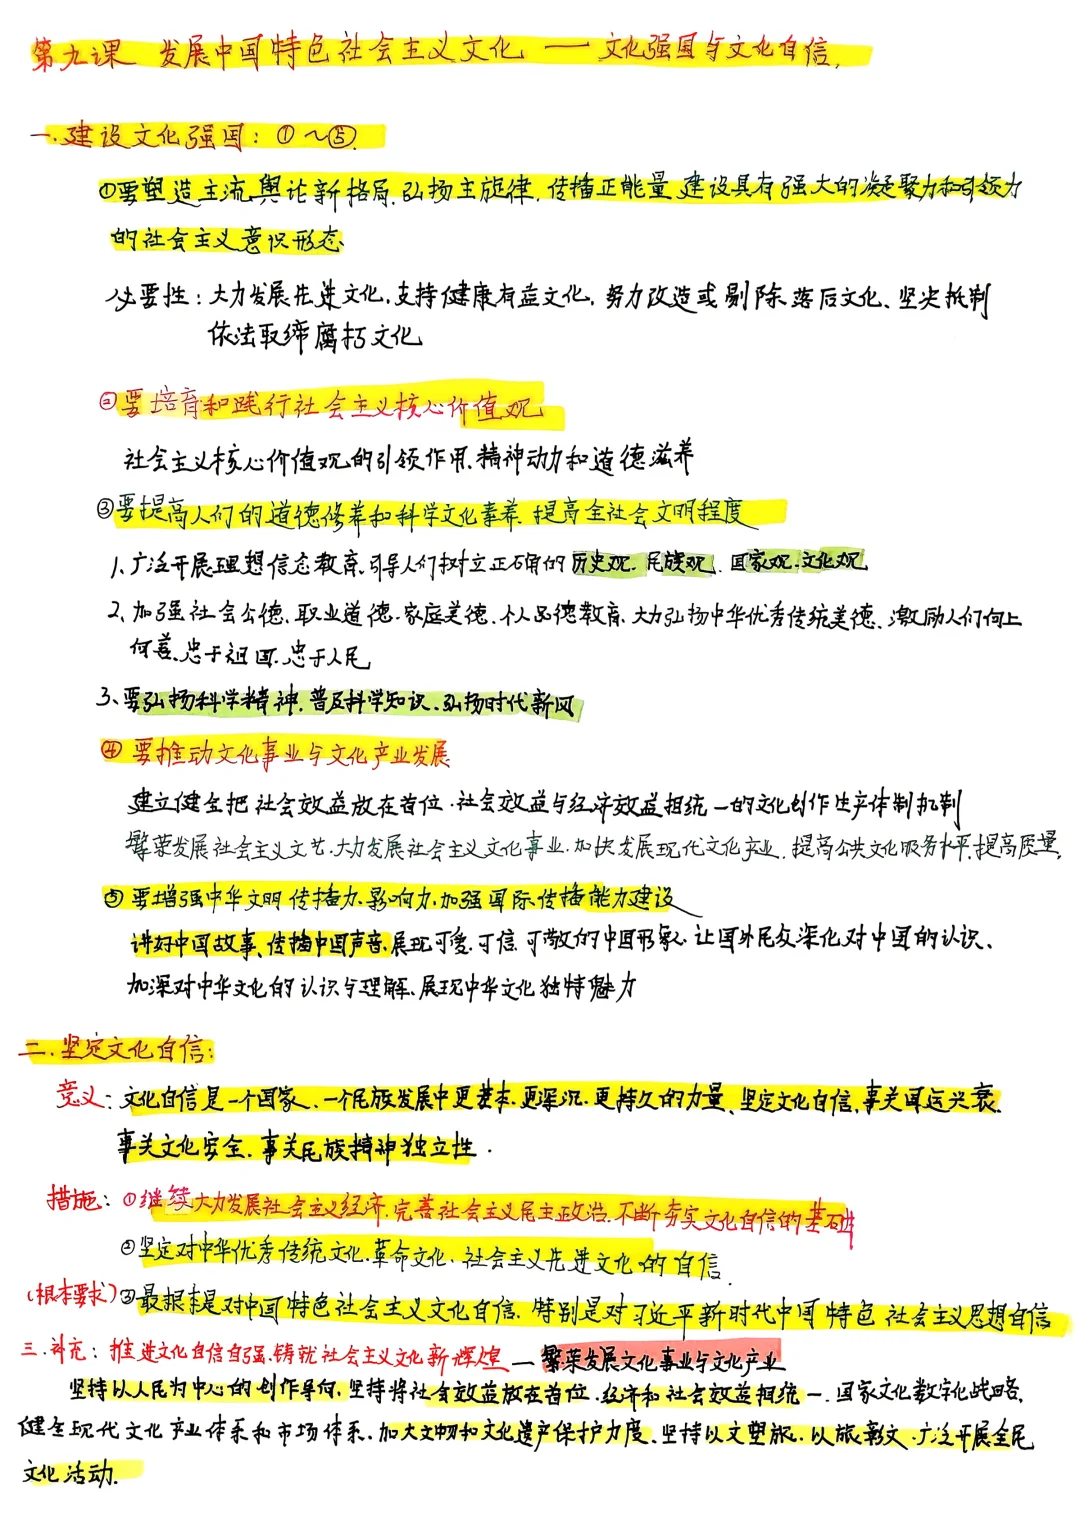 第九课 发展中国特色社会主义文化 — 文化强国与文化自信.
一.建设文化强国: ①~⑤.
①要塑造主流舆论新格局.弘扬主旋律,传播正能量 建设具有强大的凝聚力和引领力
的社会主义意识形态
必要性: 大力发展先进文化,支持健康有益文化,努力改造或剔除落后文化、坚决抵制
依法取缔腐朽文化
②要培育和践行社会主义核心价值观
社会主义核心价值观的引领作用.精神动力和道德滋养
③要提高人们的道德修养和科学文化素养.提高全社会文明程度
1、广泛开展理想信念教育,引导人们树立正确的历史观.民族观.国家观.文化观
2、加强社会公德.职业道德.家庭美德.个人品德教育.大力弘扬中华优秀传统美德、激励人们向上
向善.忠于祖国.忠于人民
3、要弘扬科学精神.普及科学知识、弘扬时代新风
④要推动文化事业与文化产业发展
建立健全把社会效益放在首位.社会效益与经济效益相统一的文化创作生产体制机制
繁荣发展社会主义文艺.大力发展社会主义文化事业.加快发展现代文化产业.提高公共文化服务水平.提高质量.
⑤要增强中华文明传播力.影响力.加强国际传播能力建设
讲好中国故事、传播中国声音.展现可爱.可信.可敬的中国形象.让国外民众深化对中国的认识、
加深对中华文化的认识与理解、展现中华文化独特魅力
二.坚定文化自信:
意义: 文化自信是一个国家、一个民族发展中更基本.更深沉.更持久的力量、坚定文化自信,事关国运兴衰.
事关文化安全.事关民族精神独立性.
措施: ①继续大力发展社会主义经济.完善社会主义民主政治.不断夯实文化自信的基础
②坚定对中华优秀传统文化.革命文化、社会主义先进文化的自信.
(根本要求)③最根本是对中国特色社会主义文化自信.特别是对习近平新时代中国特色社会主义思想自信
三.补充: 推进文化自信自强.铸就社会主义文化新辉煌—繁荣发展文化事业与文化产业
坚持以人民为中心的创作导向.坚持将社会效益放在首位.经济和社会效益相统一.国家文化数字化战略.
健全现代文化产业体系和市场体系.加大文物和文化遗产保护力度、坚持以文塑旅.以旅彰文.广泛开展全民
文化活动.